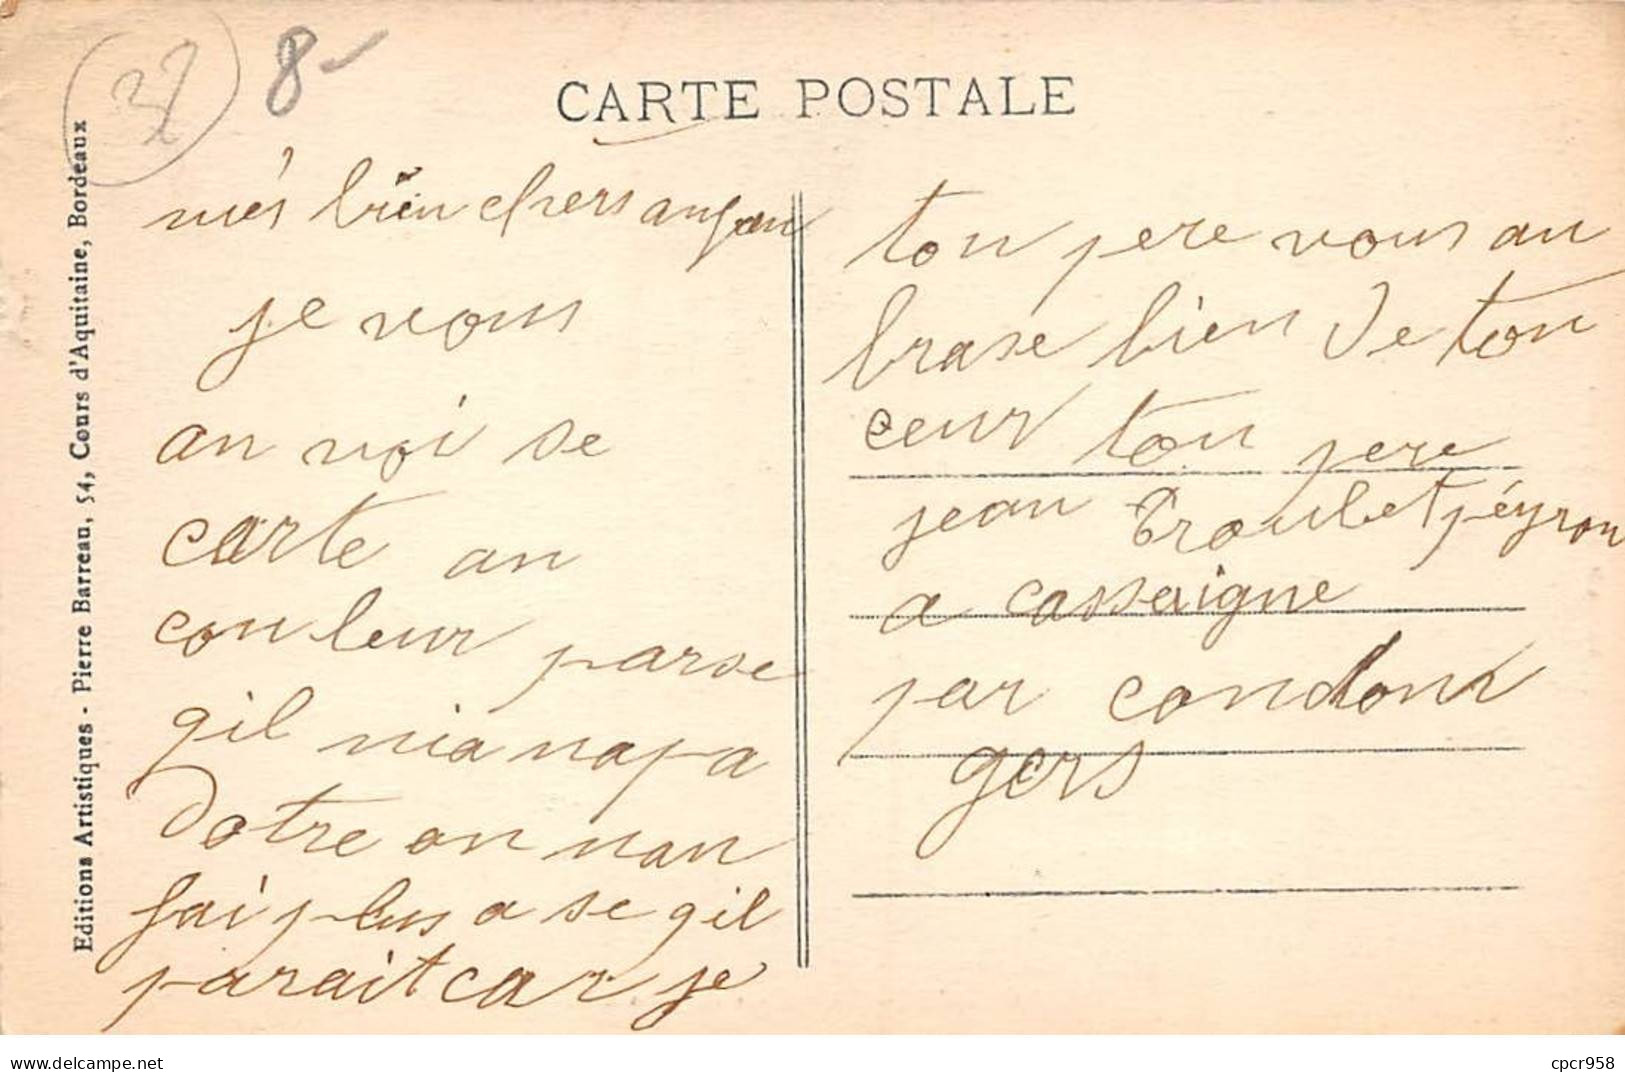 32
8-
CARTE POSTALE
Editions Artistiques - Pierre Barreau, 54, Cours d'Aquitaine, Bordeaux
més bien chers anfan
je vous
an voi se
carte an
couleur parse
gil nia napa
dotre on nan
fai plus a se gil
parait car je
ton pere vous an
brase bien de ton
ceur ton pere
jean Troubet péyron
a cassaigne
par condom
gers
delcampe.net
cpcr958